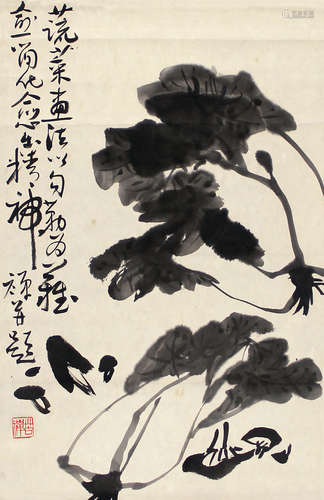 蔬菜画法以勾勒为难
愈简化愈出精神
禅并题